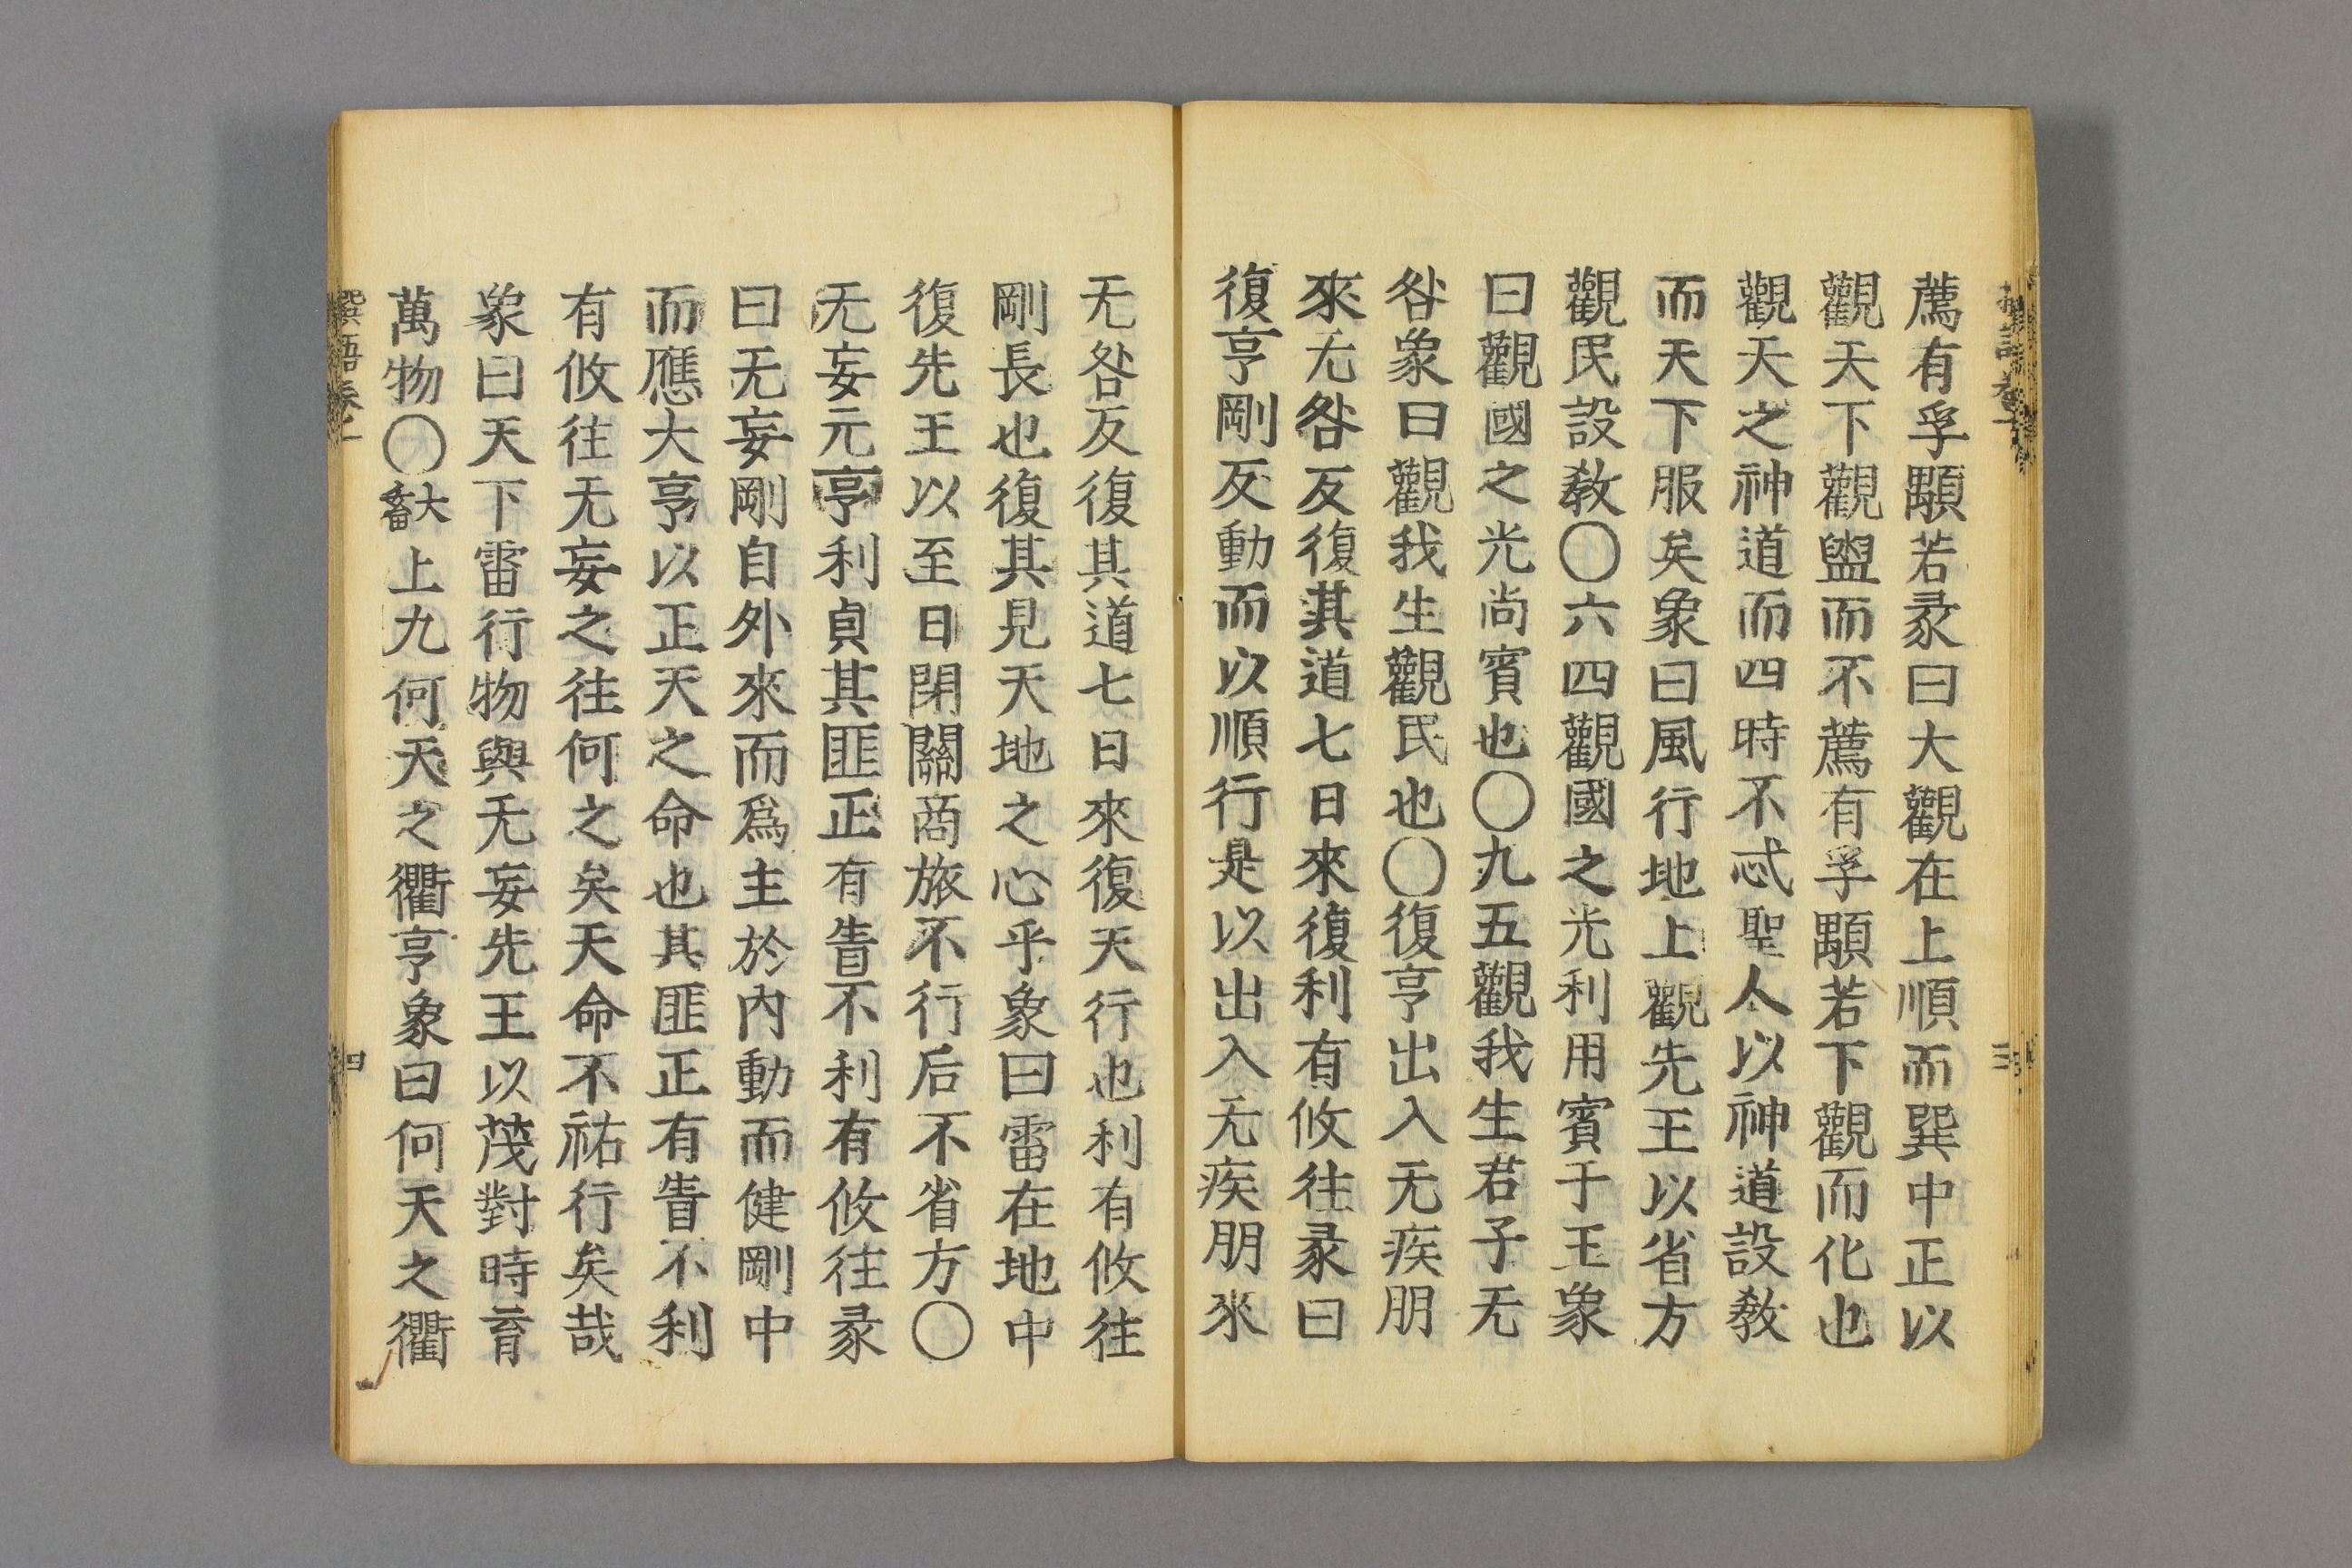 薦有孚顒若彖曰大觀在上順而巽中正以
觀天下觀盥而不薦有孚顒若下觀而化也
觀天之神道而四時不忒聖人以神道設敎
而天下服矣象曰風行地上觀先王以省方
觀民設敎〇六四觀國之光利用賓于王象
曰觀國之光尚賓也〇九五觀我生君子无
咎象曰觀我生觀民也〇復亨出入无疾朋
來无咎反復其道七日來復利有攸往彖曰
復亨剛反動而以順行是以出入无疾朋來
无咎反復其道七日來復天行也利有攸往
剛長也復其見天地之心乎象曰雷在地中
復先王以至日閉關商旅不行后不省方〇
无妄元亨利貞其匪正有眚不利有攸往彖
曰无妄剛自外來而爲主於內動而健剛中
而應大亨以正天之命也其匪正有眚不利
有攸往无妄之往何之矣天命不祐行矣哉
象曰天下雷行物與无妄先王以茂對時育
萬物〇大畜上九何天之衢亨象曰何天之衢
四